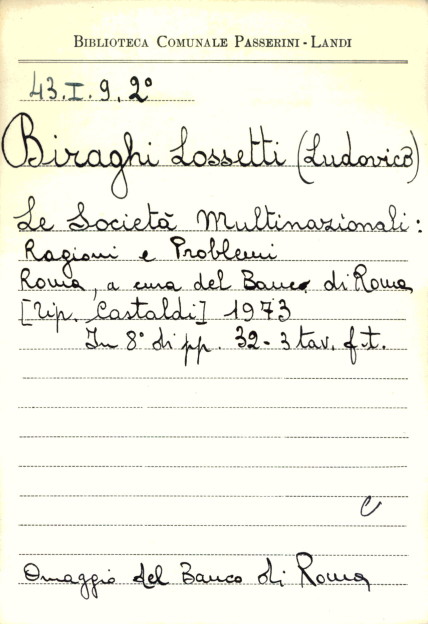 BIBLIOTECA COMUNALE PASSERINI - LANDI
43.I.9.2°
Biraghi Lossetti (Ludovico)
Le Società Multinazionali:
Ragioni e Problemi
Roma, a cura del Banco di Roma
[Tip. Castaldi] 1973
In 8° di pp. 32-3 tav. f.t.
C
Omaggio del Banco di Roma